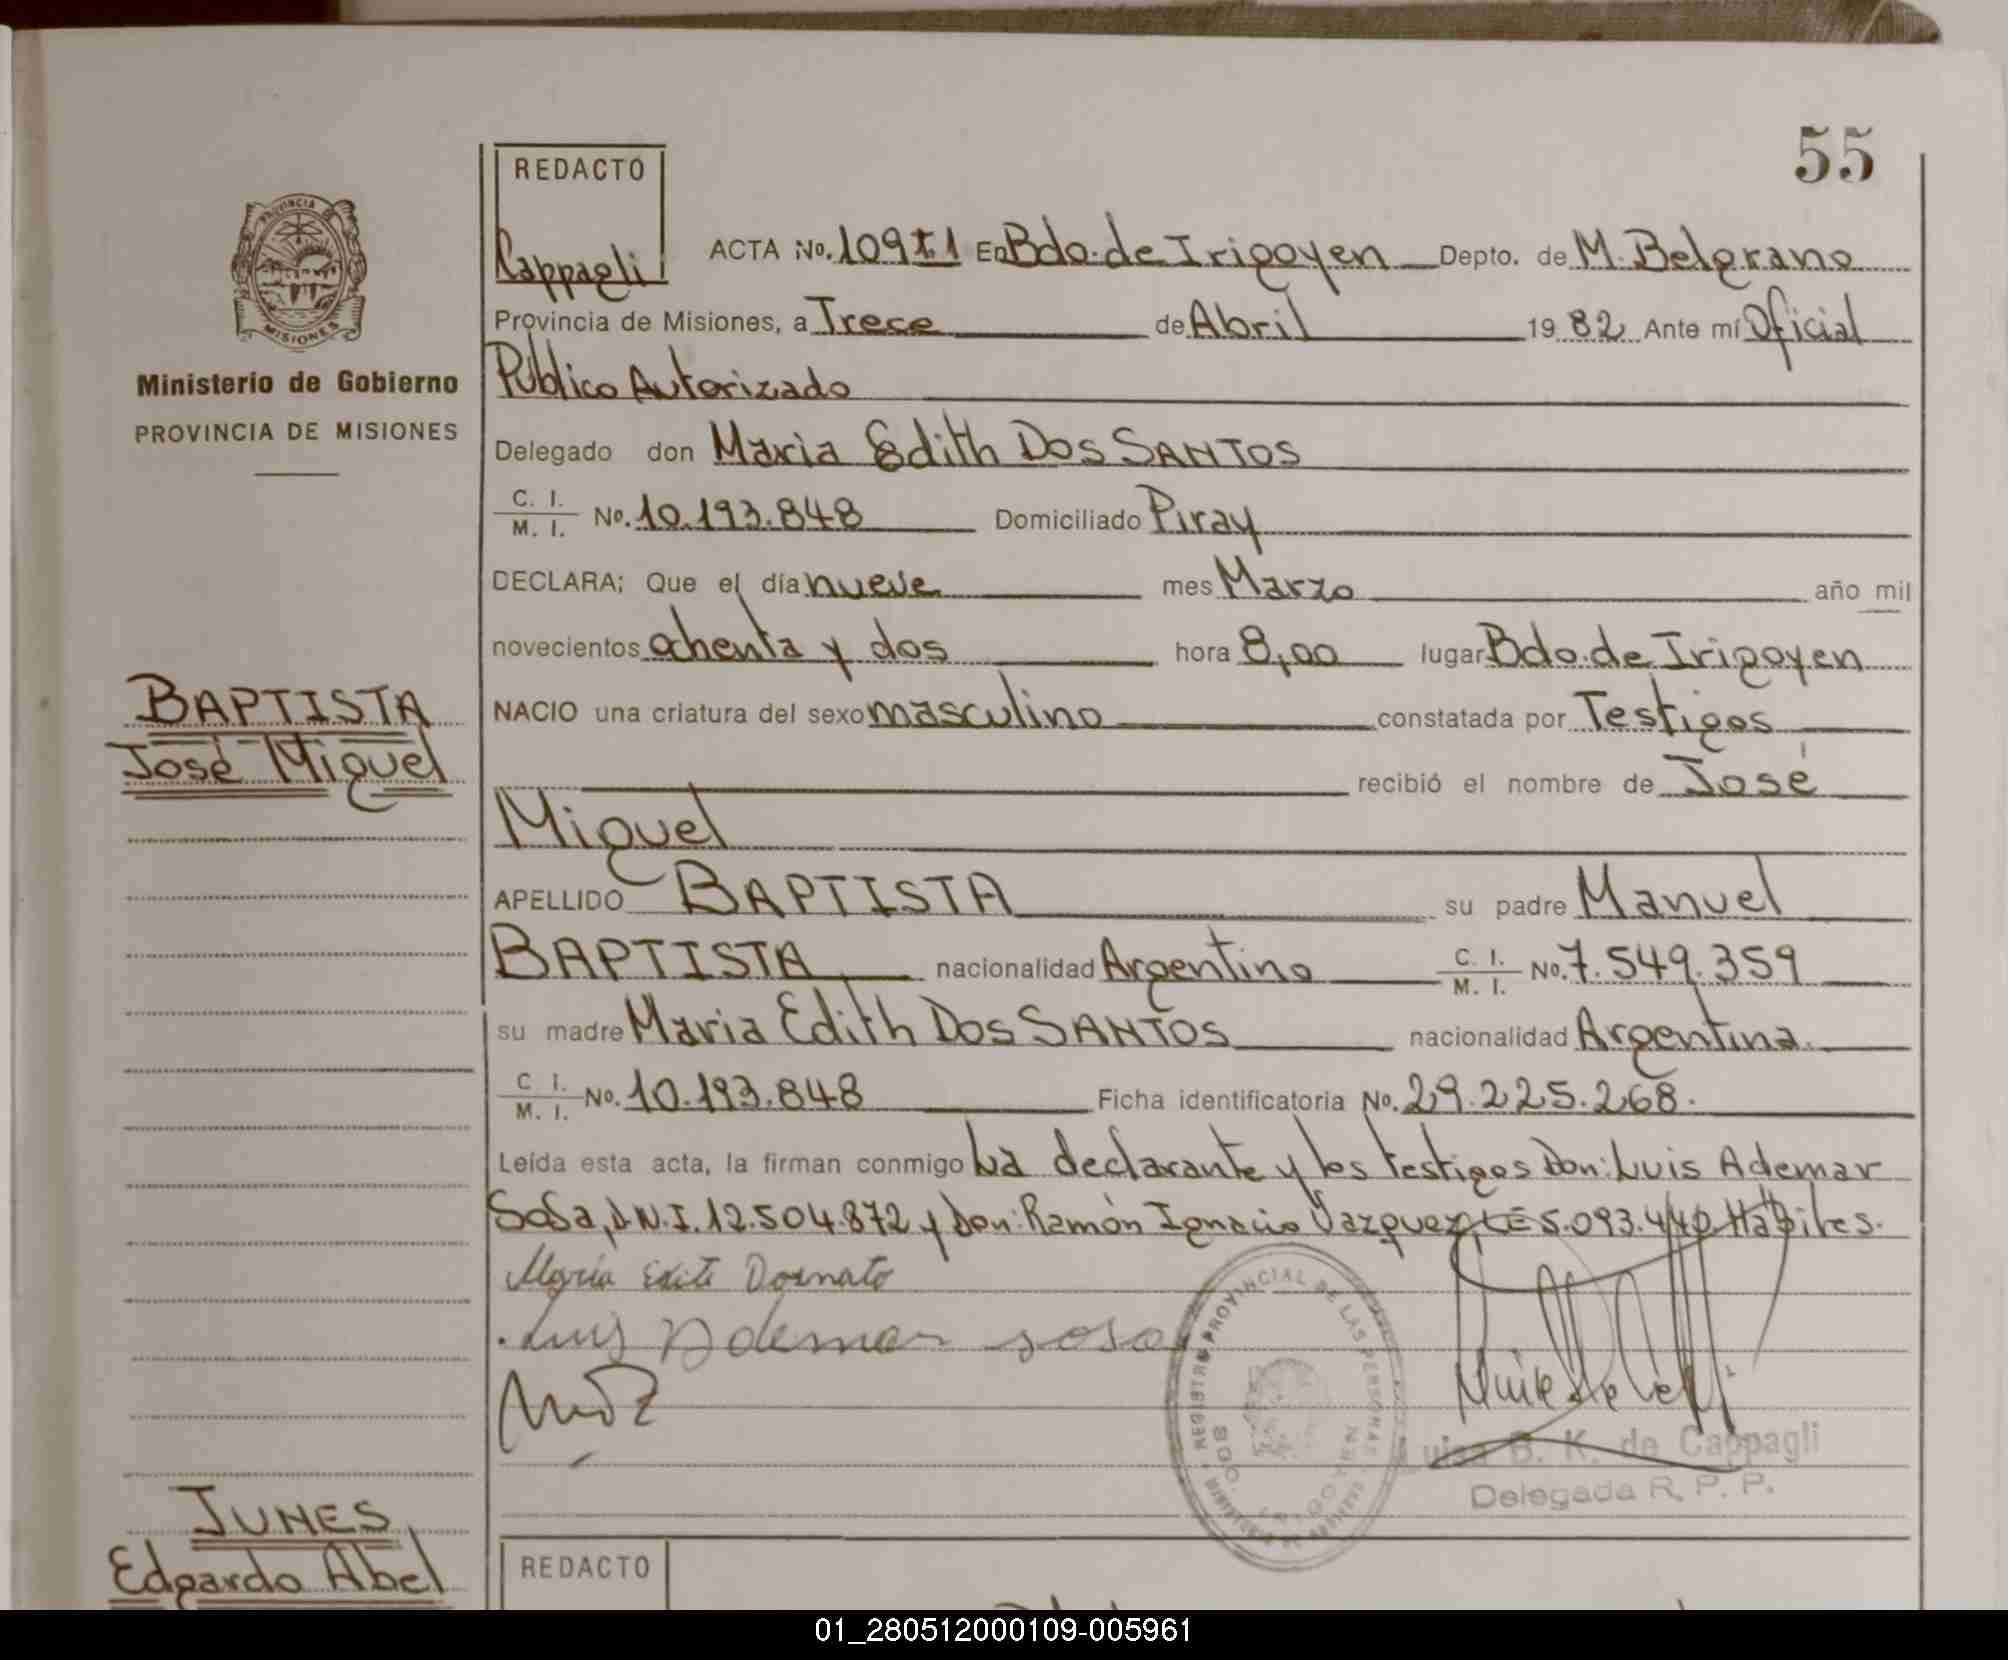 55
REDACTO
Cappagli
ACTA No. 109 T.1 En Bdo. de Irigoyen Depto. de M. Belgrano
Provincia de Misiones, a Trece de Abril 19 82 Ante mí Oficial
Público Autorizado
Delegado don Maria Edith Dos SANTOS
C. I.
M. I. No. 10.193.848 Domiciliado Piray
DECLARA; Que el día nueve mes Marzo año mil
novecientos ochenta y dos hora 8,00 lugar Bdo. de Irigoyen
NACIO una criatura del sexo masculino constatada por Testigos
recibió el nombre de José
Miguel
APELLIDO BAPTISTA su padre Manuel
BAPTISTA nacionalidad Argentino C. I. M. I. No. 7.549.359
su madre Maria Edith Dos SANTOS nacionalidad Argentina.
C. I.
M. I. No. 10.193.848 Ficha identificatoria No. 29.225.268.
Leída esta acta, la firman conmigo La declarante y los testigos Don: Luis Ademar
Sosa, D.N.I. 12.504.872 y Don: Ramón Ignacio Vazquez, LE 5.093.440 Hábiles.
Luis Ademar sosa
REGISTRO PROVINCIAL DE LAS PERSONAS
BDO. IRIGOYEN
B. K. de Cappagli
Delegada R. P. P.
PROVINCIA DE
MISIONES
Ministerio de Gobierno
PROVINCIA DE MISIONES
BAPTISTA
José Miguel
JUNES
Edgardo Abel
REDACTO
01_280512000109-005961